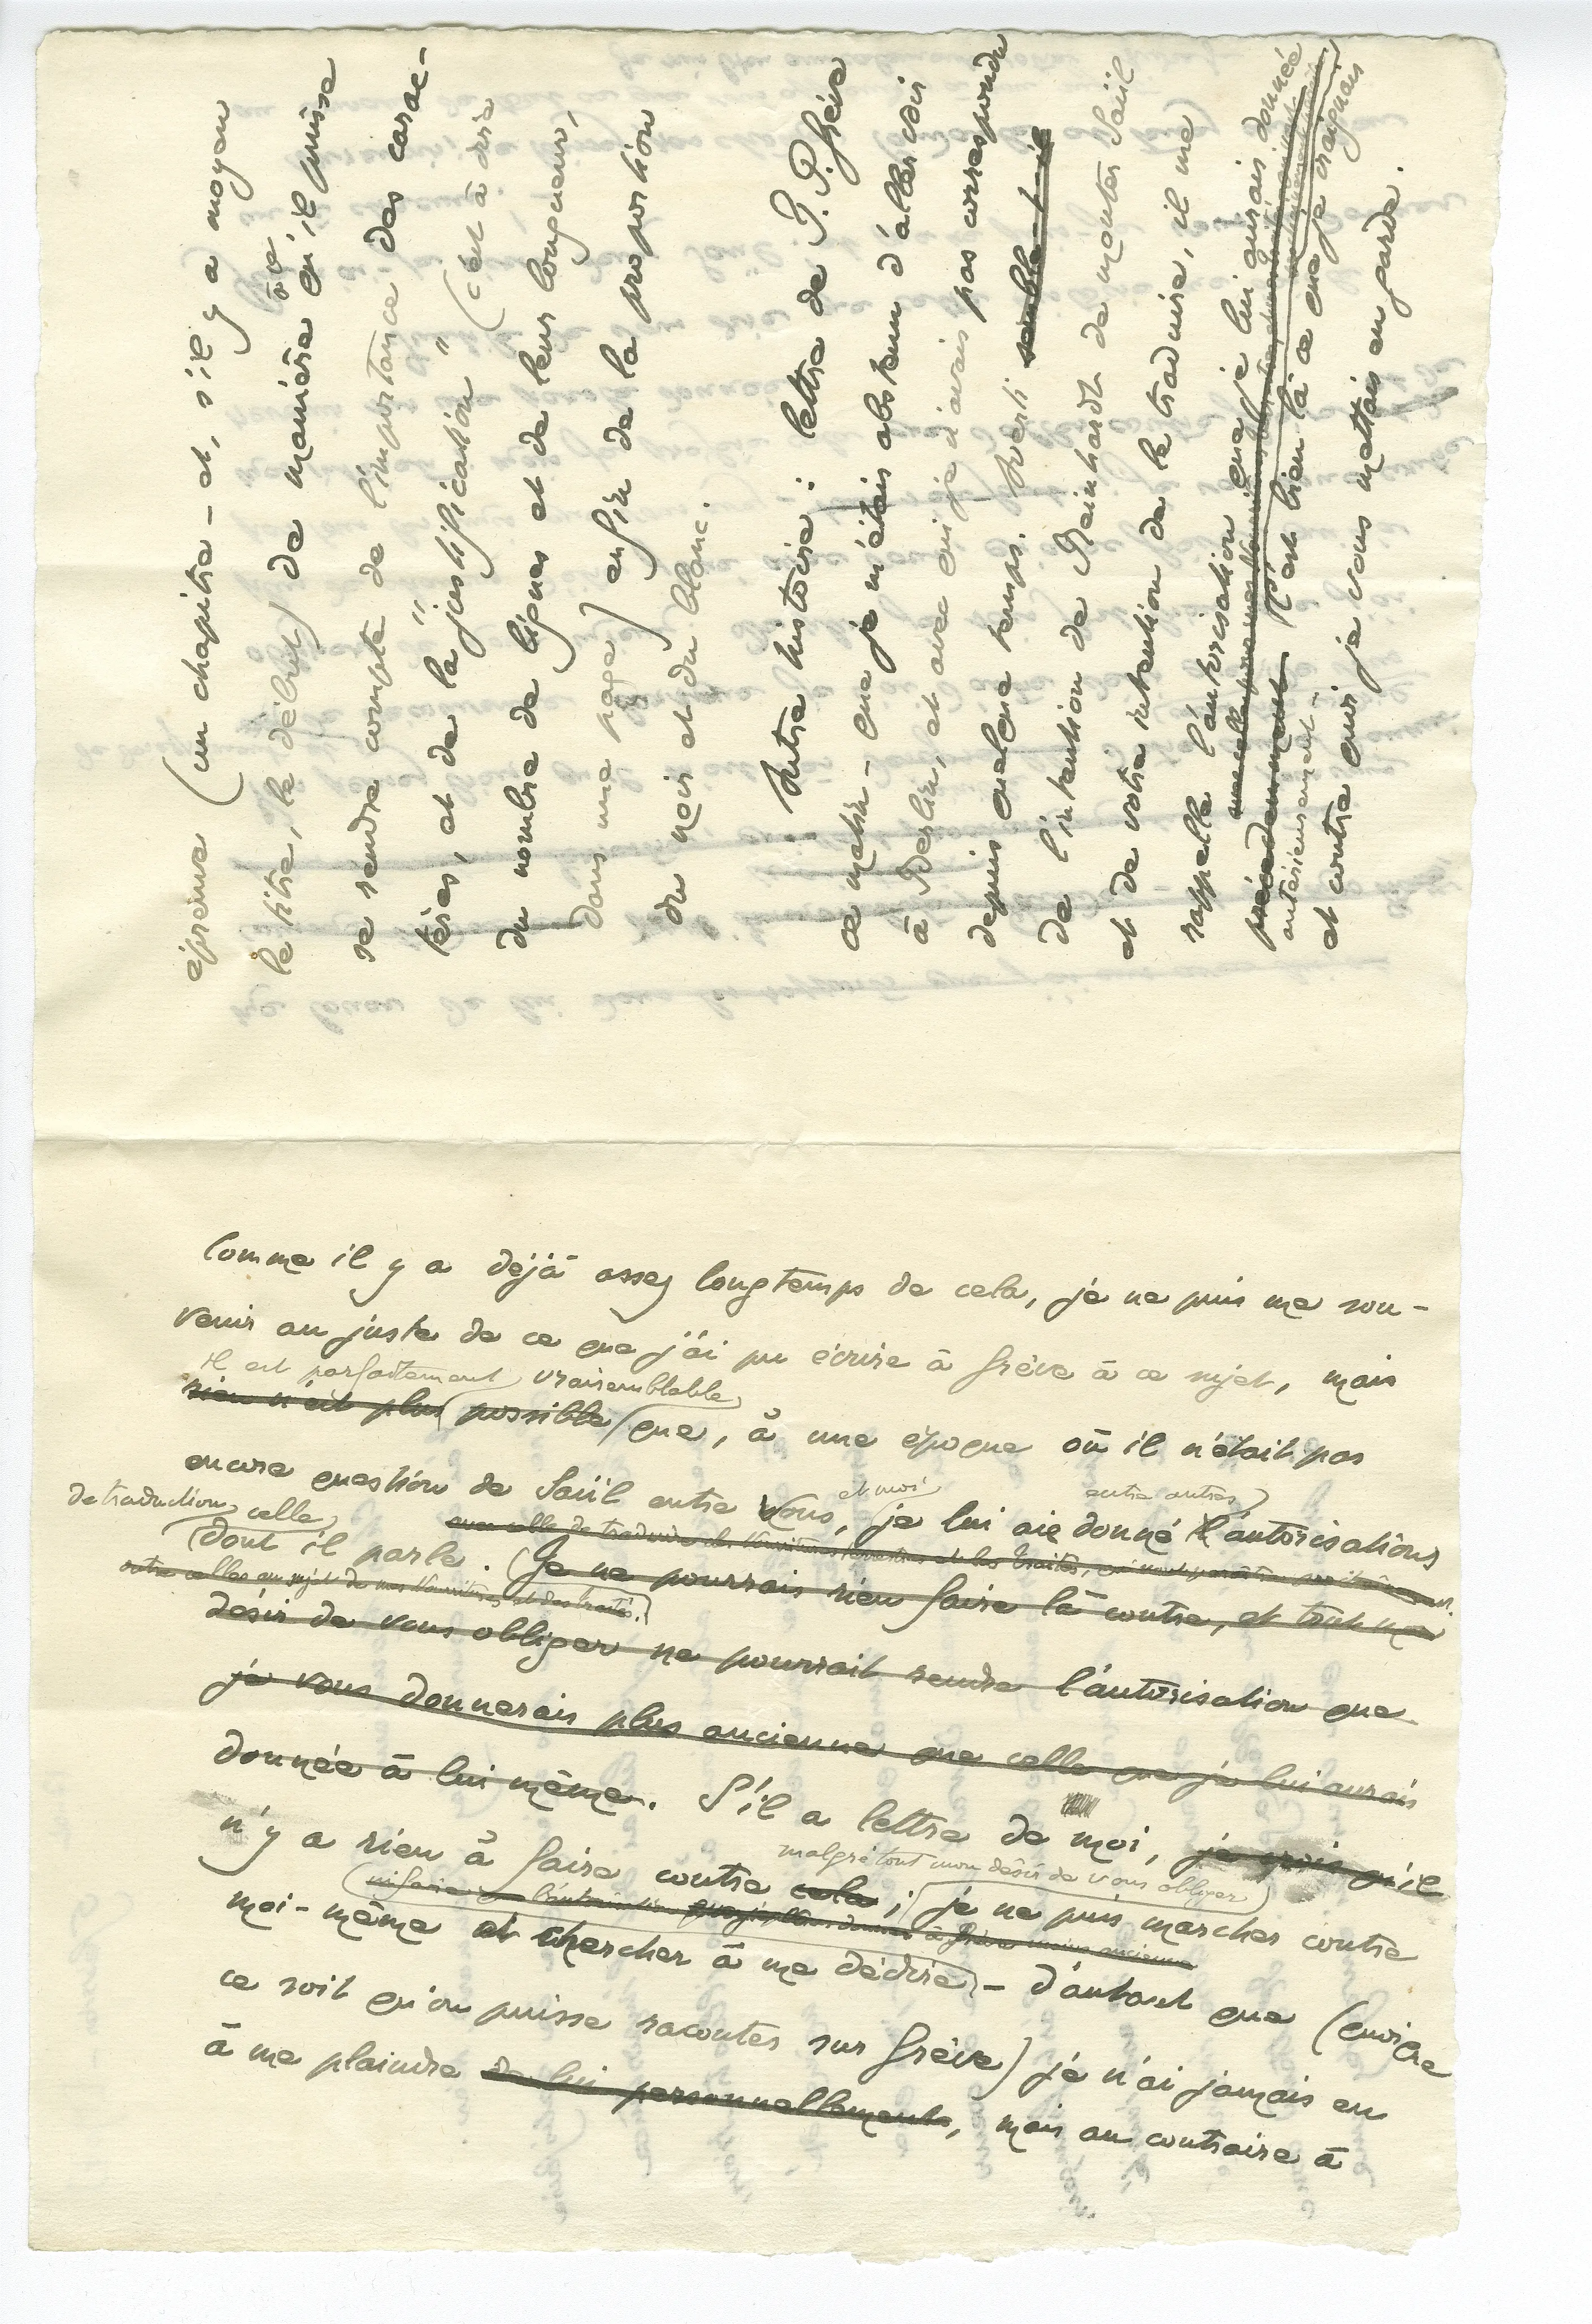 épreuve (un chapitre – et, s'il y a moyen
avec
le titre, le début) de manière qu'il puisse
se rendre compte de l'importance des carac-
tères, et de la "justification" (c'est à dire
du nombre de lignes et de leur longueur,
dans une page) enfin de la proportion
du noir et du blanc.
Autre histoire : lettre de P. P. Grève
ce matin – que je m'étais abstenu d'aller voir
à Berlin, et avec qui je n'avais pas correspondu
depuis quelque temps. Averti semble-t-il
de l'intention de Reinhardt de monter Saül
et de votre intention de le traduire, il me
rappelle l'autorisation que je lui aurais donnée
précédemment C'est bien là ce que je craignais
antérieurement –
et contre quoi je vous mettais en garde.
Comme il y a déjà assez longtemps de cela, je ne puis me sou-
venir au juste de ce que j'ai pu écrire à Grève à ce sujet, mais
il est parfaitement vraisemblable
rien n'est plus possible que, à une époque où il n'était pas
encore question de Saül entre vous, et moi je lui aie donné entre autres l'autorisations
de traduction celle
dont il parle. Je ne pourrais rien faire là contre, et tout mon
outre celles au sujet de mes Nourritures et des traités.
désir de vous obliger ne pourrait rendre l'autorisation que
je vous donnerais plus ancienne que celle que je lui aurais
donnée à lui même. S'il a lettre de moi, je crois qu'il
n'y a rien à faire contre cela ; malgré tout mon désir de vous obliger je ne puis marcher contre
moi-même et chercher à me dédire – d'autant que (quoi que
ce soit qu'on puisse raconter sur Grève) je n'ai jamais eu
à me plaindre de lui personnellement, mais au contraire à